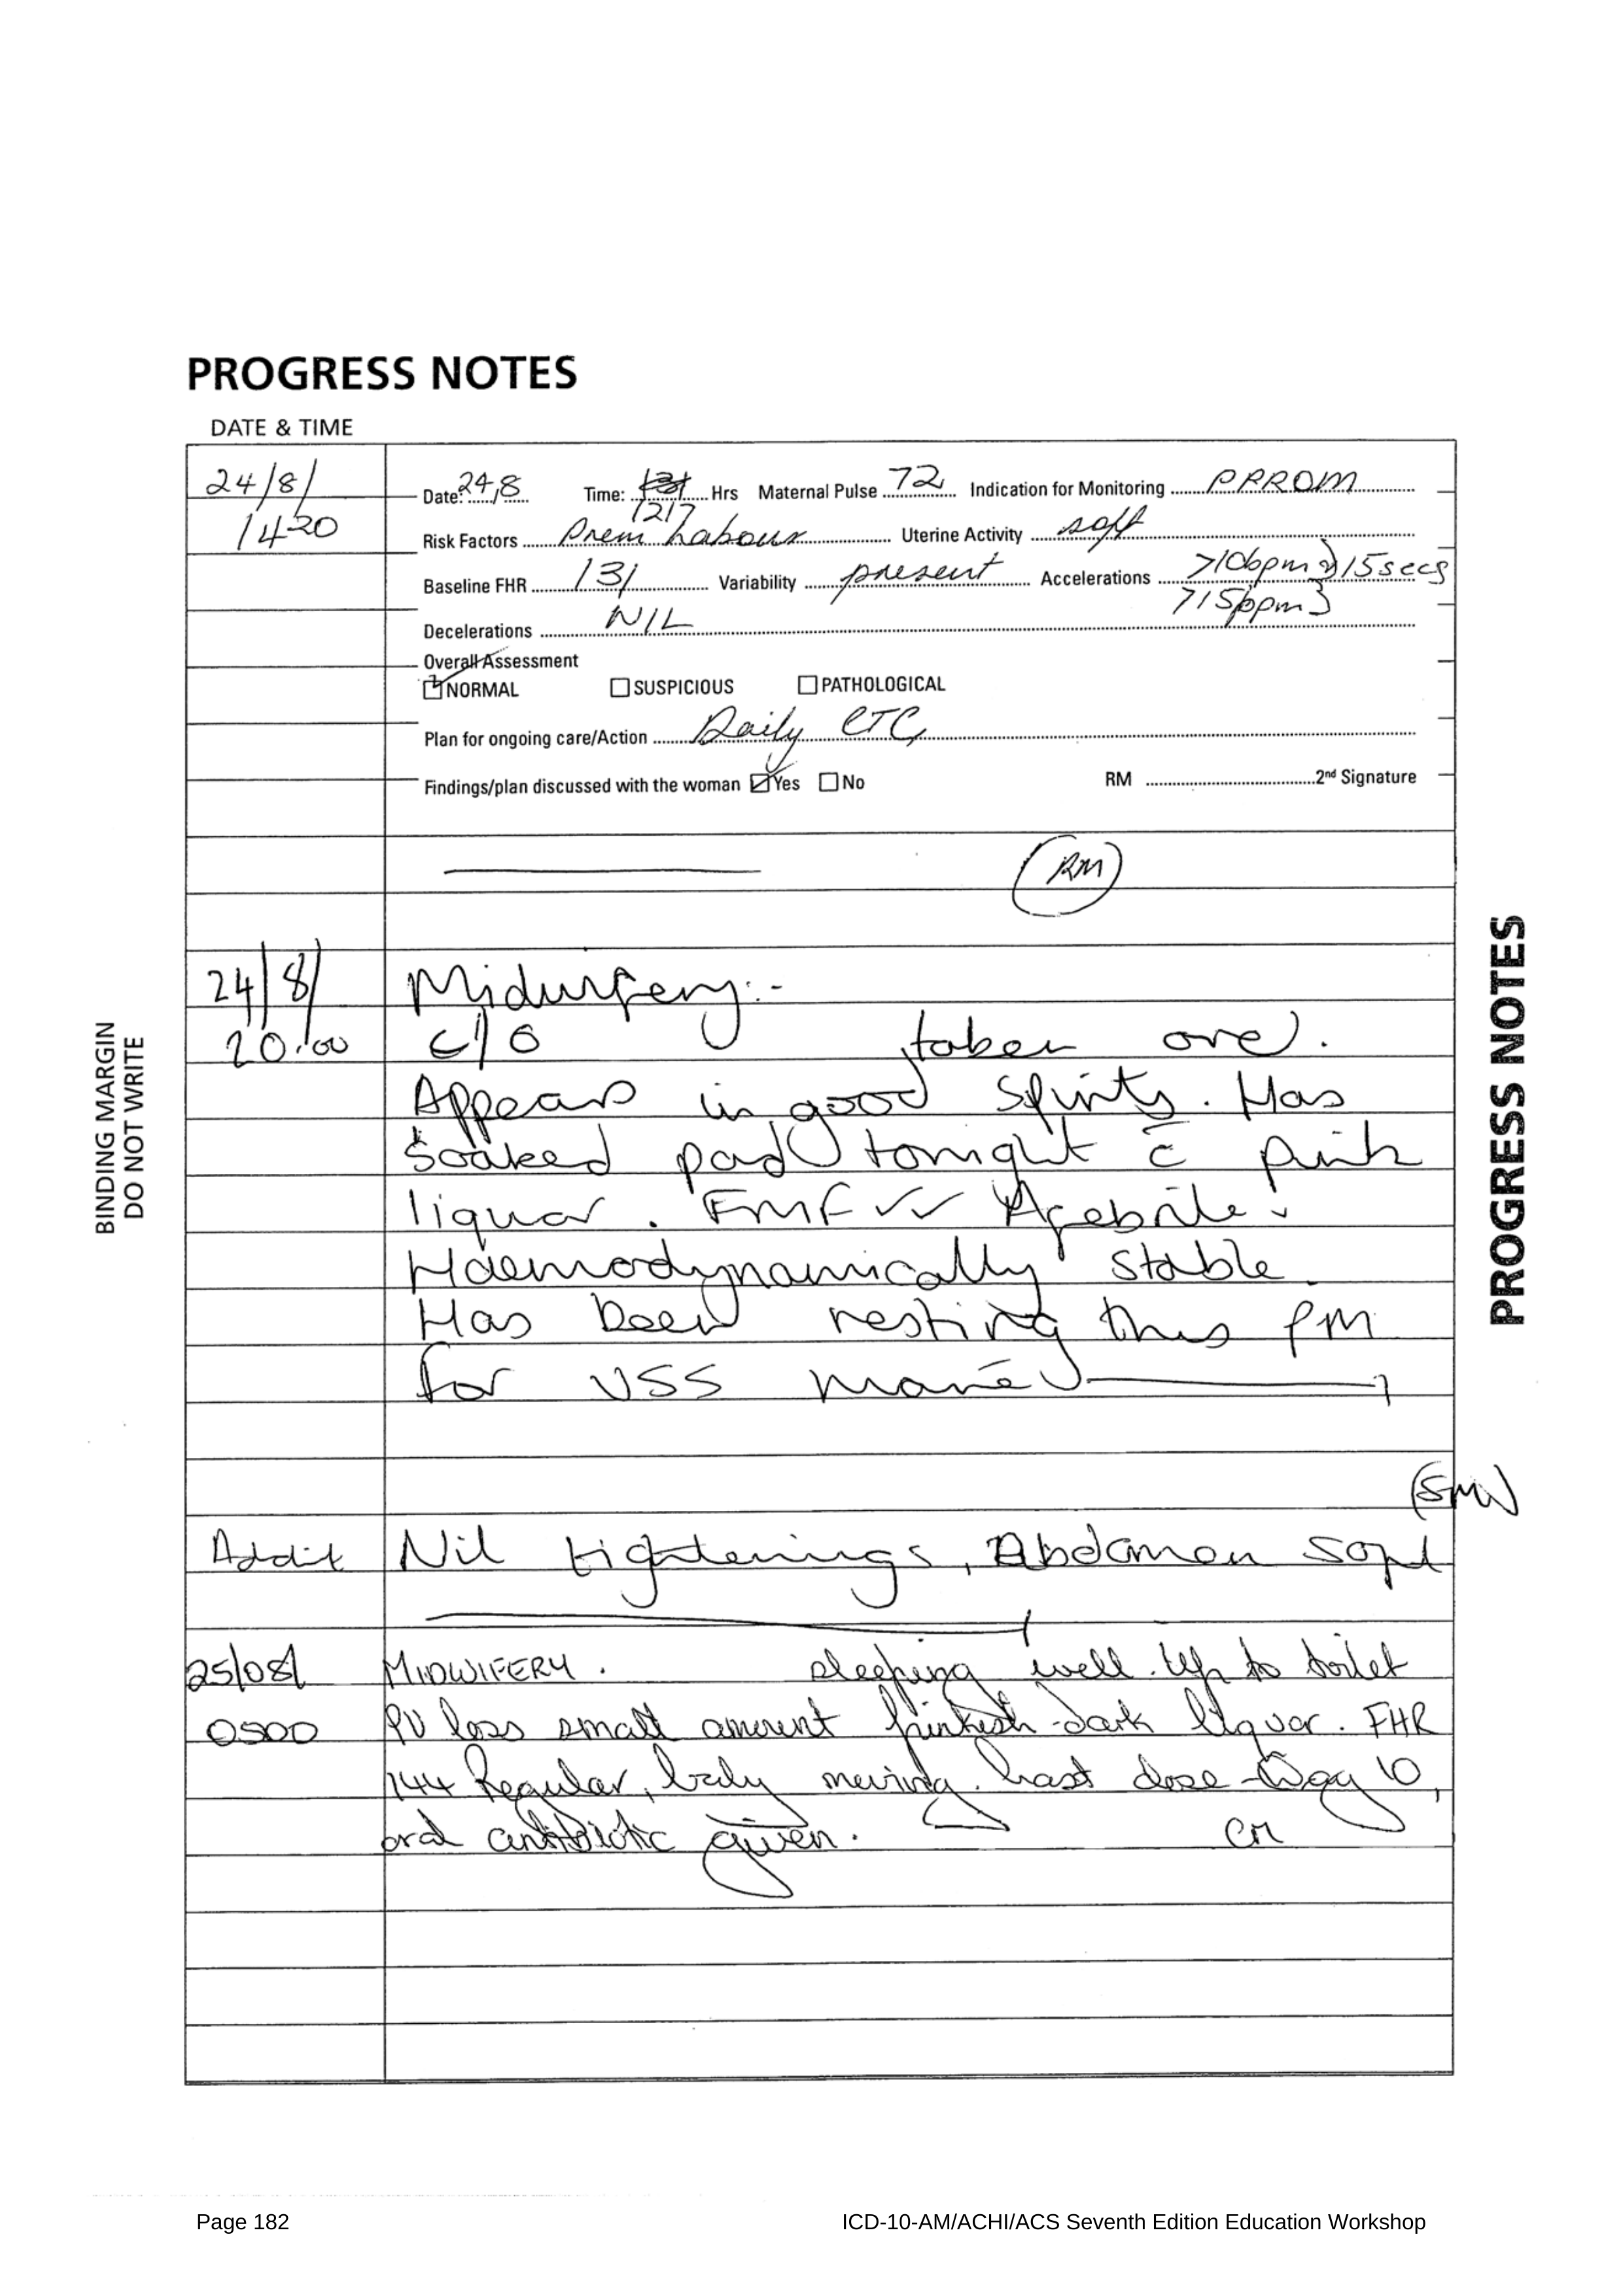 PROGRESS NOTES
DATE & TIME
24/8/ Date: 24/8 Time: Hrs Maternal Pulse 72 Indication for Monitoring PPROM
1420 1217
Risk Factors Prem Labour Uterine Activity soft
Baseline FHR 131 Variability present Accelerations >10bpm 15secs
>15bpm
Decelerations NIL
Overall Assessment
NORMAL SUSPICIOUS PATHOLOGICAL
Plan for ongoing care/Action Daily CTG
Findings/plan discussed with the woman Yes No RM 2nd Signature
RM
24/8/ Midwifery:-
20.00 c/o taken over.
Appears in good spirits. Has
soaked pad tonight c̄ pink
liquor. FMF ✓✓ Afebrile.
Haemodynamically stable
Has been resting this PM
for USS mane
(SMW)
Addit Nil tightenings, Abdomen soft
25/08/ MIDWIFERY. sleeping well. Up to toilet
0500 PV loss small amount pinkish-dark liquor. FHR
144 Regular, baby moving. Last dose - Day 10,
oral antibiotic given. CM
BINDING MARGIN
DO NOT WRITE
PROGRESS NOTES
Page 182 ICD-10-AM/ACHI/ACS Seventh Edition Education Workshop